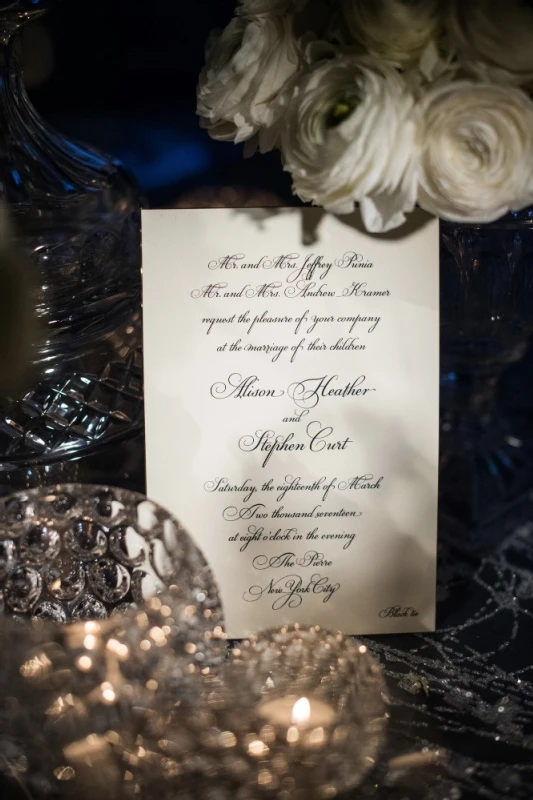 Mr. and Mrs. Jeffrey Punia
Mr. and Mrs. Andrew Kramer
request the pleasure of your company
at the marriage of their children
Alison Heather
and
Stephen Curt
Saturday, the eighteenth of March
Two thousand seventeen
at eight o'clock in the evening
The Pierre
New York City
Black tie